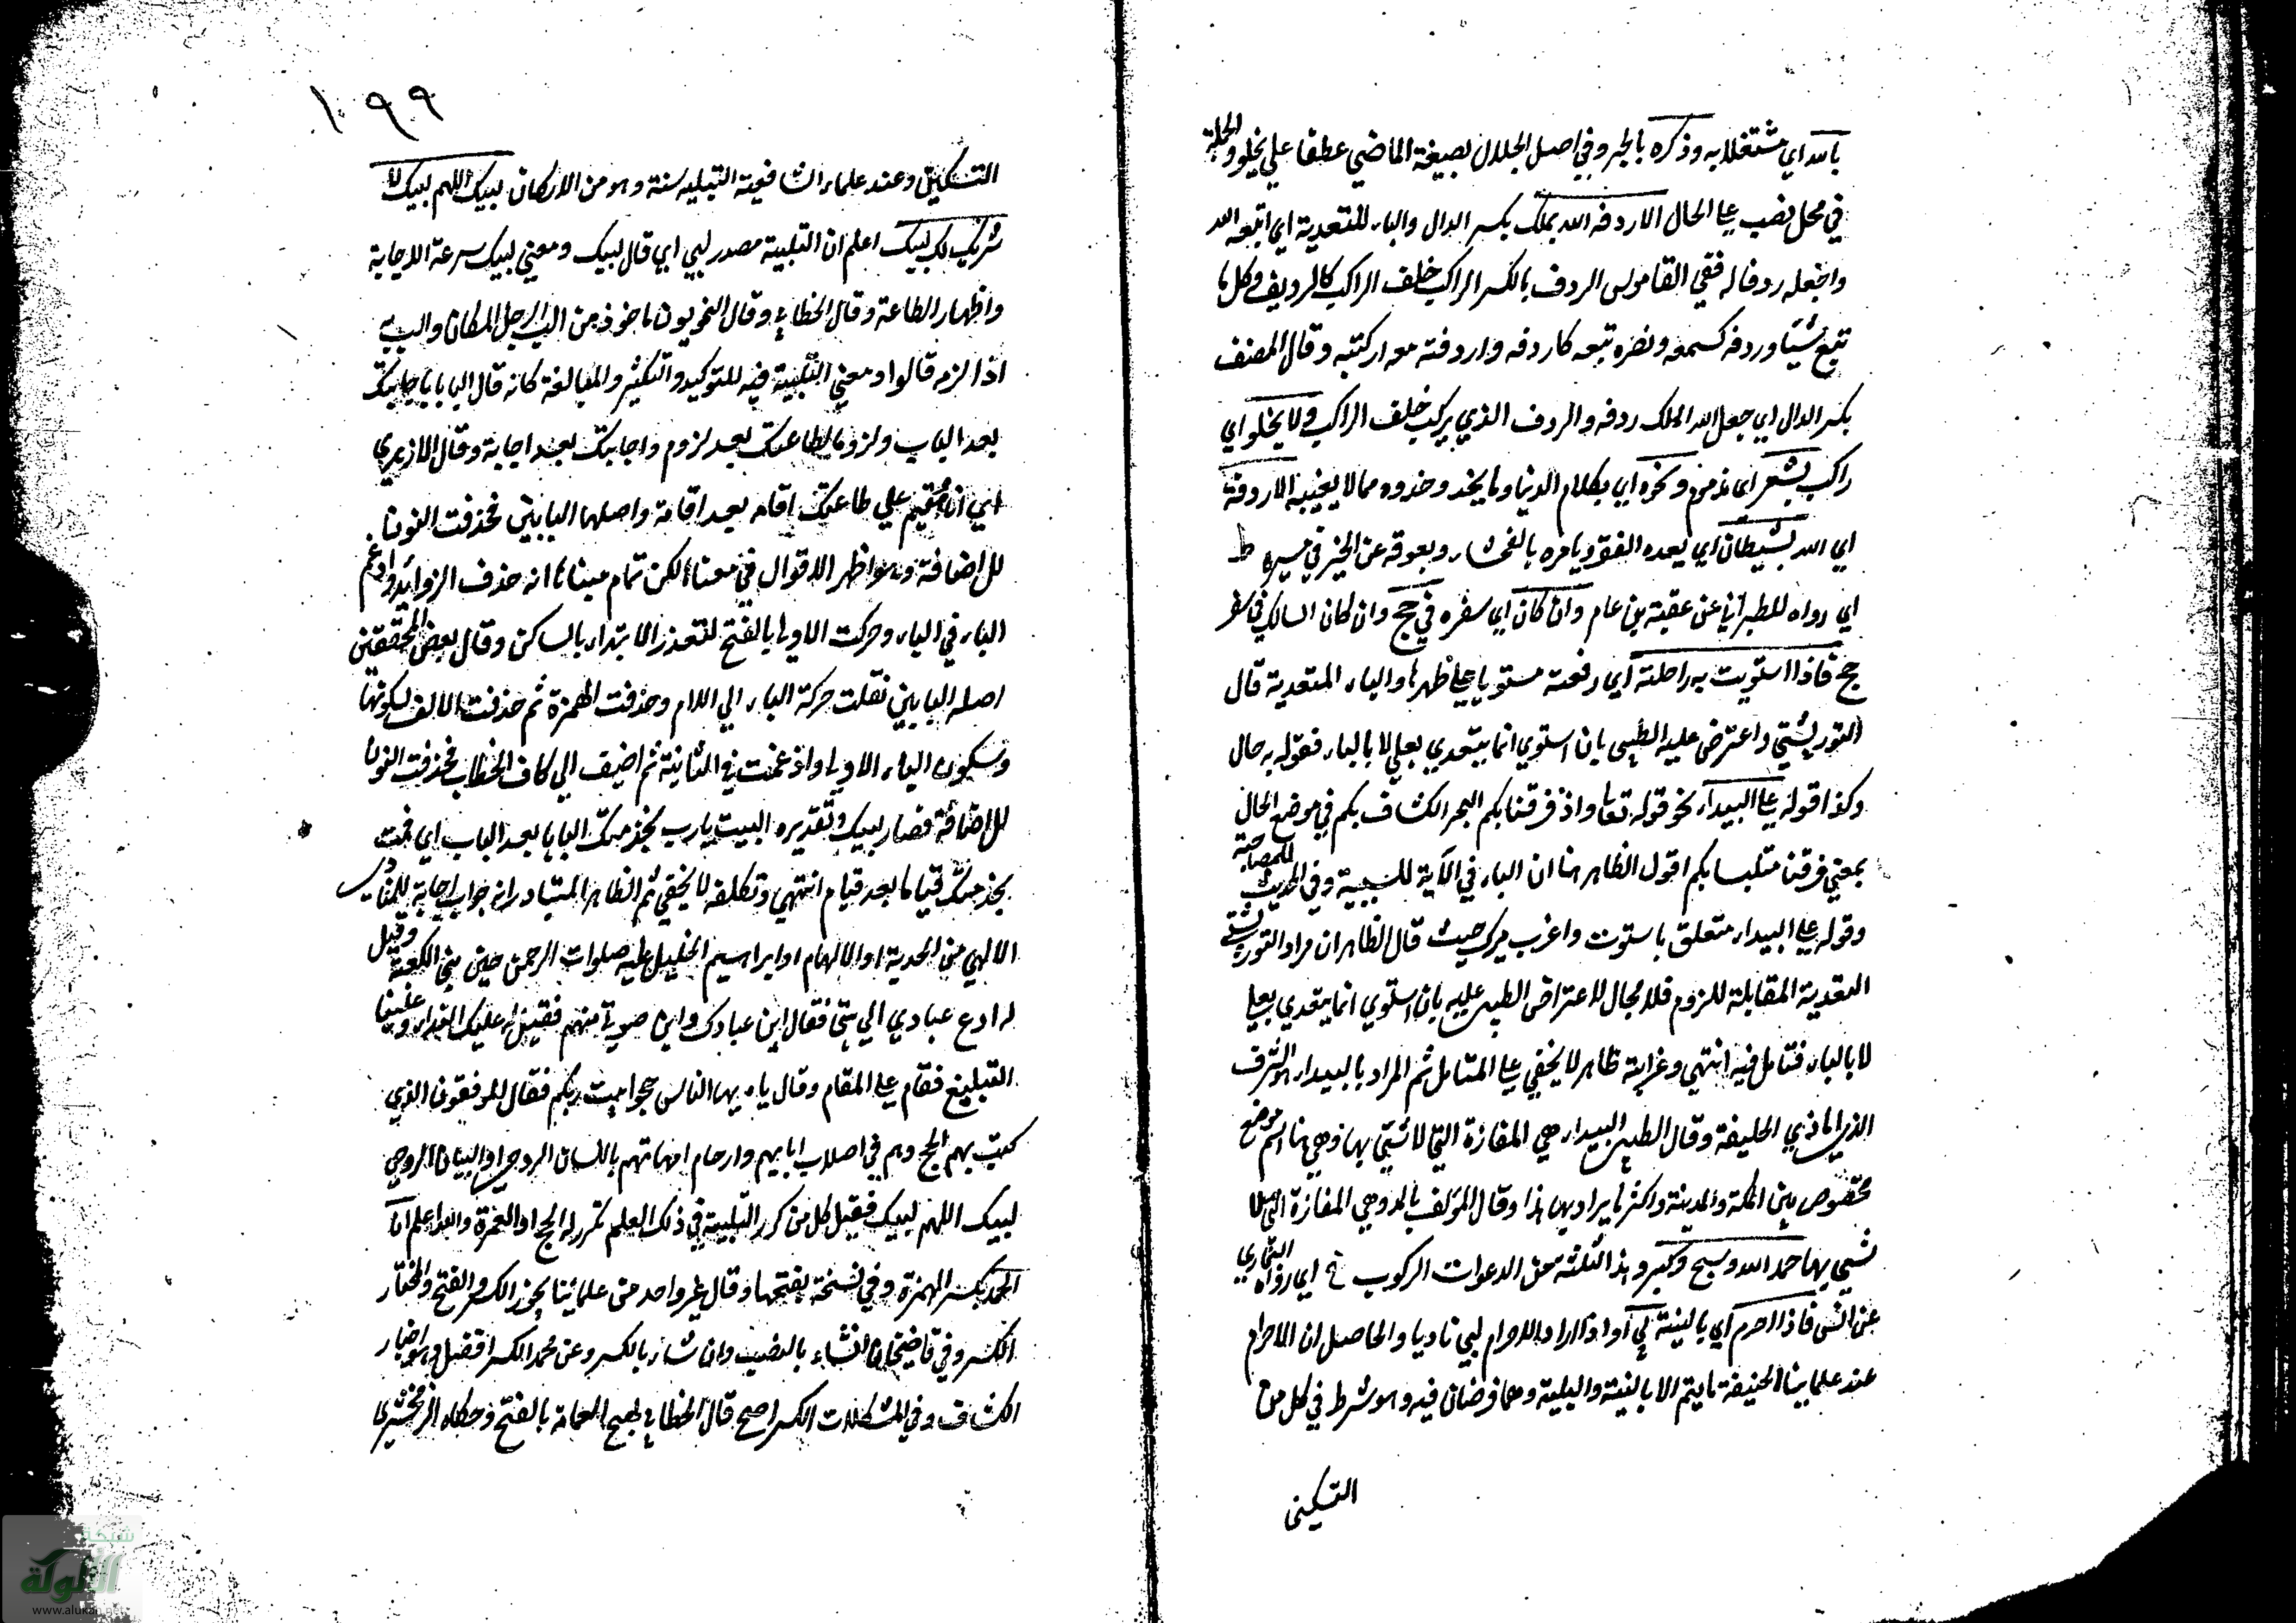 بالله اي مشتغلا به وذكره بالجر وفي اصل الجلال بصيغة الماضي عطفا علي يخلو والجملة
في محل نصب علي الحال الا ردفه الله بملك بكسر الدال والباء للتعدية اي اتبعه الله
واجعله ردفا له ففي القاموس الردف بالكسر الراكب خلف الراكب كالرديف وكل ما
تبع شيئا وردفه كسمعه ونصره تبعه كاردفه واردفته معه اركبته وقال المصنف
بكسر الدال اي جعل الله الملك ردفه والردف الذي يركب خلف الراكب ولا يخلو اي
راكب بشعر اي مذموم ونحوه اي بكلام الدنيا وما يخذ وحذوه مما لا يعنيه الا ردفه
اي الله بشيطان اي يعده الفقر ويامره بالفحشاء ويعوقه عن الخير في مسيره ط
اي رواه للطبراني عن عقبة بن عامر وان كان اي سفره في حج وان كان السالك في سفر
حج فاذا استويت به راحلته اي رفعته مستويا علي ظهرها والباء المتعدية قال
التوربشتي واعترض عليه الطيبي بان استوي انما يتعدي بعلي لا بالباء فقوله به حال
وكذا قوله علي البيداء نحو قوله تعا واذ فرقنا بكم البحر الكشاف بكم في موضع الحال
بمعني فرقنا متلبسا بكم اقول الظاهر هنا ان الباء في الآية للسببية وفي الحديث للمصاحبة
وقوله علي البيداء متعلق باستوت واغرب ميرك حيث قال الظاهر ان مراد التوربشتي
التعدية المقابلة للزوم فلا مجال للاعتراض الطيبي عليه بان استوي انما يتعدي بعلي
لا بالباء فتامل فيه انتهي وغرابته ظاهر لا يخفي علي المتامل ثم المراد بالبيداء هو الشرف
الذي امام ذي الحليفة وقال الطيبي البيداء هي المفازة التي لا شيئ بها وهي هنا اسم موضع
مخصوص بين المكة والمدينة واكثر ما يراد بها هذا وقال المؤلف بالمد وهي المفازة التي لا
شيئ بها حمد الله وسبح وكبر وهذا الثلثة من الدعوات الركوب خ اي رواه البخاري
عن انس فاذا احرم اي بالنية لبي او اذا اراد الاحرام لبي ناديا والحاصل ان الاحرام
عند علمائنا الحنيفة ما يتم الا بالنية والتلبية وهما فرضان فيه وهو شرط في كل من
التسكين
١٠٩٩
التسكين وعند علماء الشافعية التلبيه سنة وهو من الاركان لبيك اللهم لبيك لا
شريك لك لبيك اعلم ان التلبية مصدر لبي اي قال لبيك ومعني لبيك سرعة الاجابة
واظهار الطاعة وقال الخطابي وقال النحويون ماخوذ من الب الرجل المكان والب به
اذا لزمه قالوا ومعني التلبية فيه للتوكيد والتكثير والمبالغة كانه قال البابا باجابتك
بعد الباب ولزوما لطاعتك بعد لزوم واجابتك بعد اجابة وقال الازهري
اي انا مقيم علي طاعتك اقامه بعد اقامة واصلها البابين فحذفت النون
للاضافة وهو اظهر الاقوال في معناه لكن تمام مبناه انه حذف الزوايد وادغم
الباء في الياء وحركت الاولي بالفتح لتعذر الابتداء بالساكن وقال بعض المحققين
اصله البابين نقلت حركة الباء الي اللام وحذفت الهمزة ثم حذفت الالف لسكونها
وسكون الباء الاولي وادغمت في الثانية ثم اضيف الي كاف الخطاب فحذفت النون
للاضافة فصار لبيك وتقديره البيت يارب بخدمتك البابا بعد الباب اي قمت
بخدمتك قياما بعد قيام انتهي وتكلفه لا يخفي ثم الظاهر المتبادر انه جواب اجابة للمنادي
الالهي من الحديث او الالهام او ابراهيم الخليل عليه صلوات الرحمن حين بني الكعبة وقيل
له ادع عبادي الي بيتي فقال اين عبادك واين صوتي منهم فقيل له عليك النداء وعلينا
التبليغ فقام علي المقام وقال يا ايها الناس حجوا بيت ربكم فقال الموفقون الذي
كتب بهم الحج وهم في اصلاب ابائهم وارحام امهاتهم باللسان الروحي او البيان الروحي
لبيك اللهم لبيك فقيل كل من كرر التلبية في ذلك العلم تكرر له الحج او العمرة والله اعلم ان
الحمد بكسر الهمزة وفي نسخة بفتحها وقال غير واحد من علمائنا يجوز الكسر والفتح والمختار
الكسر وفي قاضيخان ان شاء بالنصب وان شاء بالكسر وعن محمد الكسر افضل وهو اختيار
الكشاف وفي المشكلات الكسر اصح قال الخطابي لهج العامة بالفتح وحكاه الزمخشري
شبكة
الألوكة
www.alukah.net